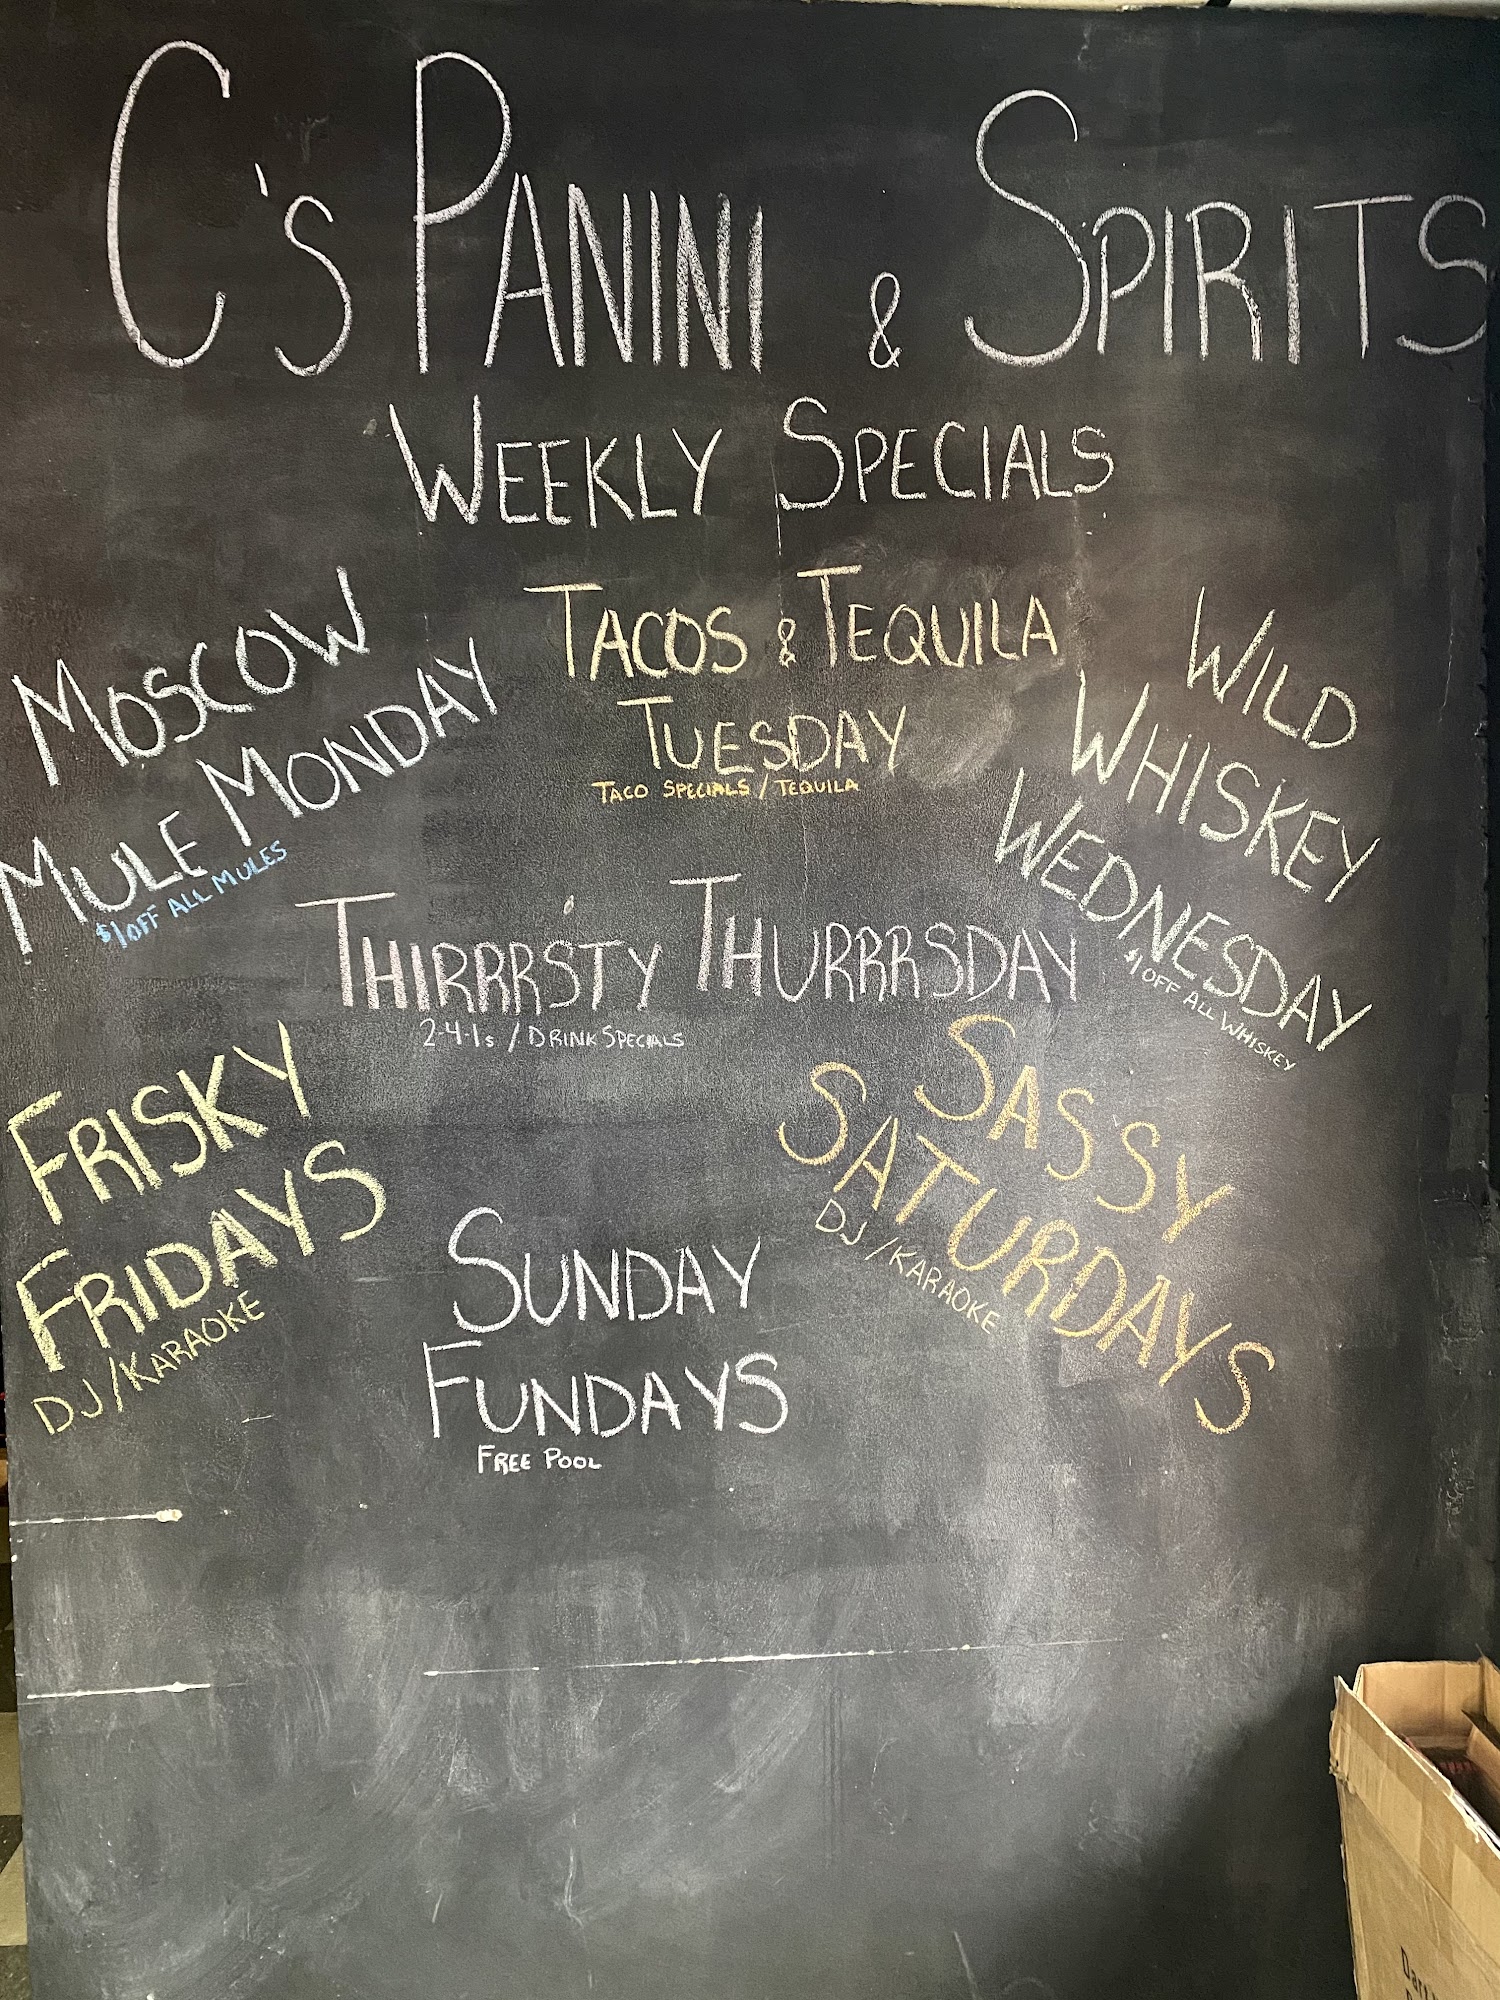 C's PANINI & SPIRITS
WEEKLY SPECIALS
MOSCOW
MULE MONDAY
$1 OFF ALL MULES
TACOS & TEQUILA
TUESDAY
TACO SPECIALS / TEQUILA
WILD
WHISKEY
WEDNESDAY
$1 OFF ALL WHISKEY
THIRRRSTY THURRRSDAY
2-4-1s / DRINK SPECIALS
FRISKY
FRIDAYS
DJ/KARAOKE
SASSY
SATURDAYS
DJ/KARAOKE
SUNDAY
FUNDAYS
FREE POOL